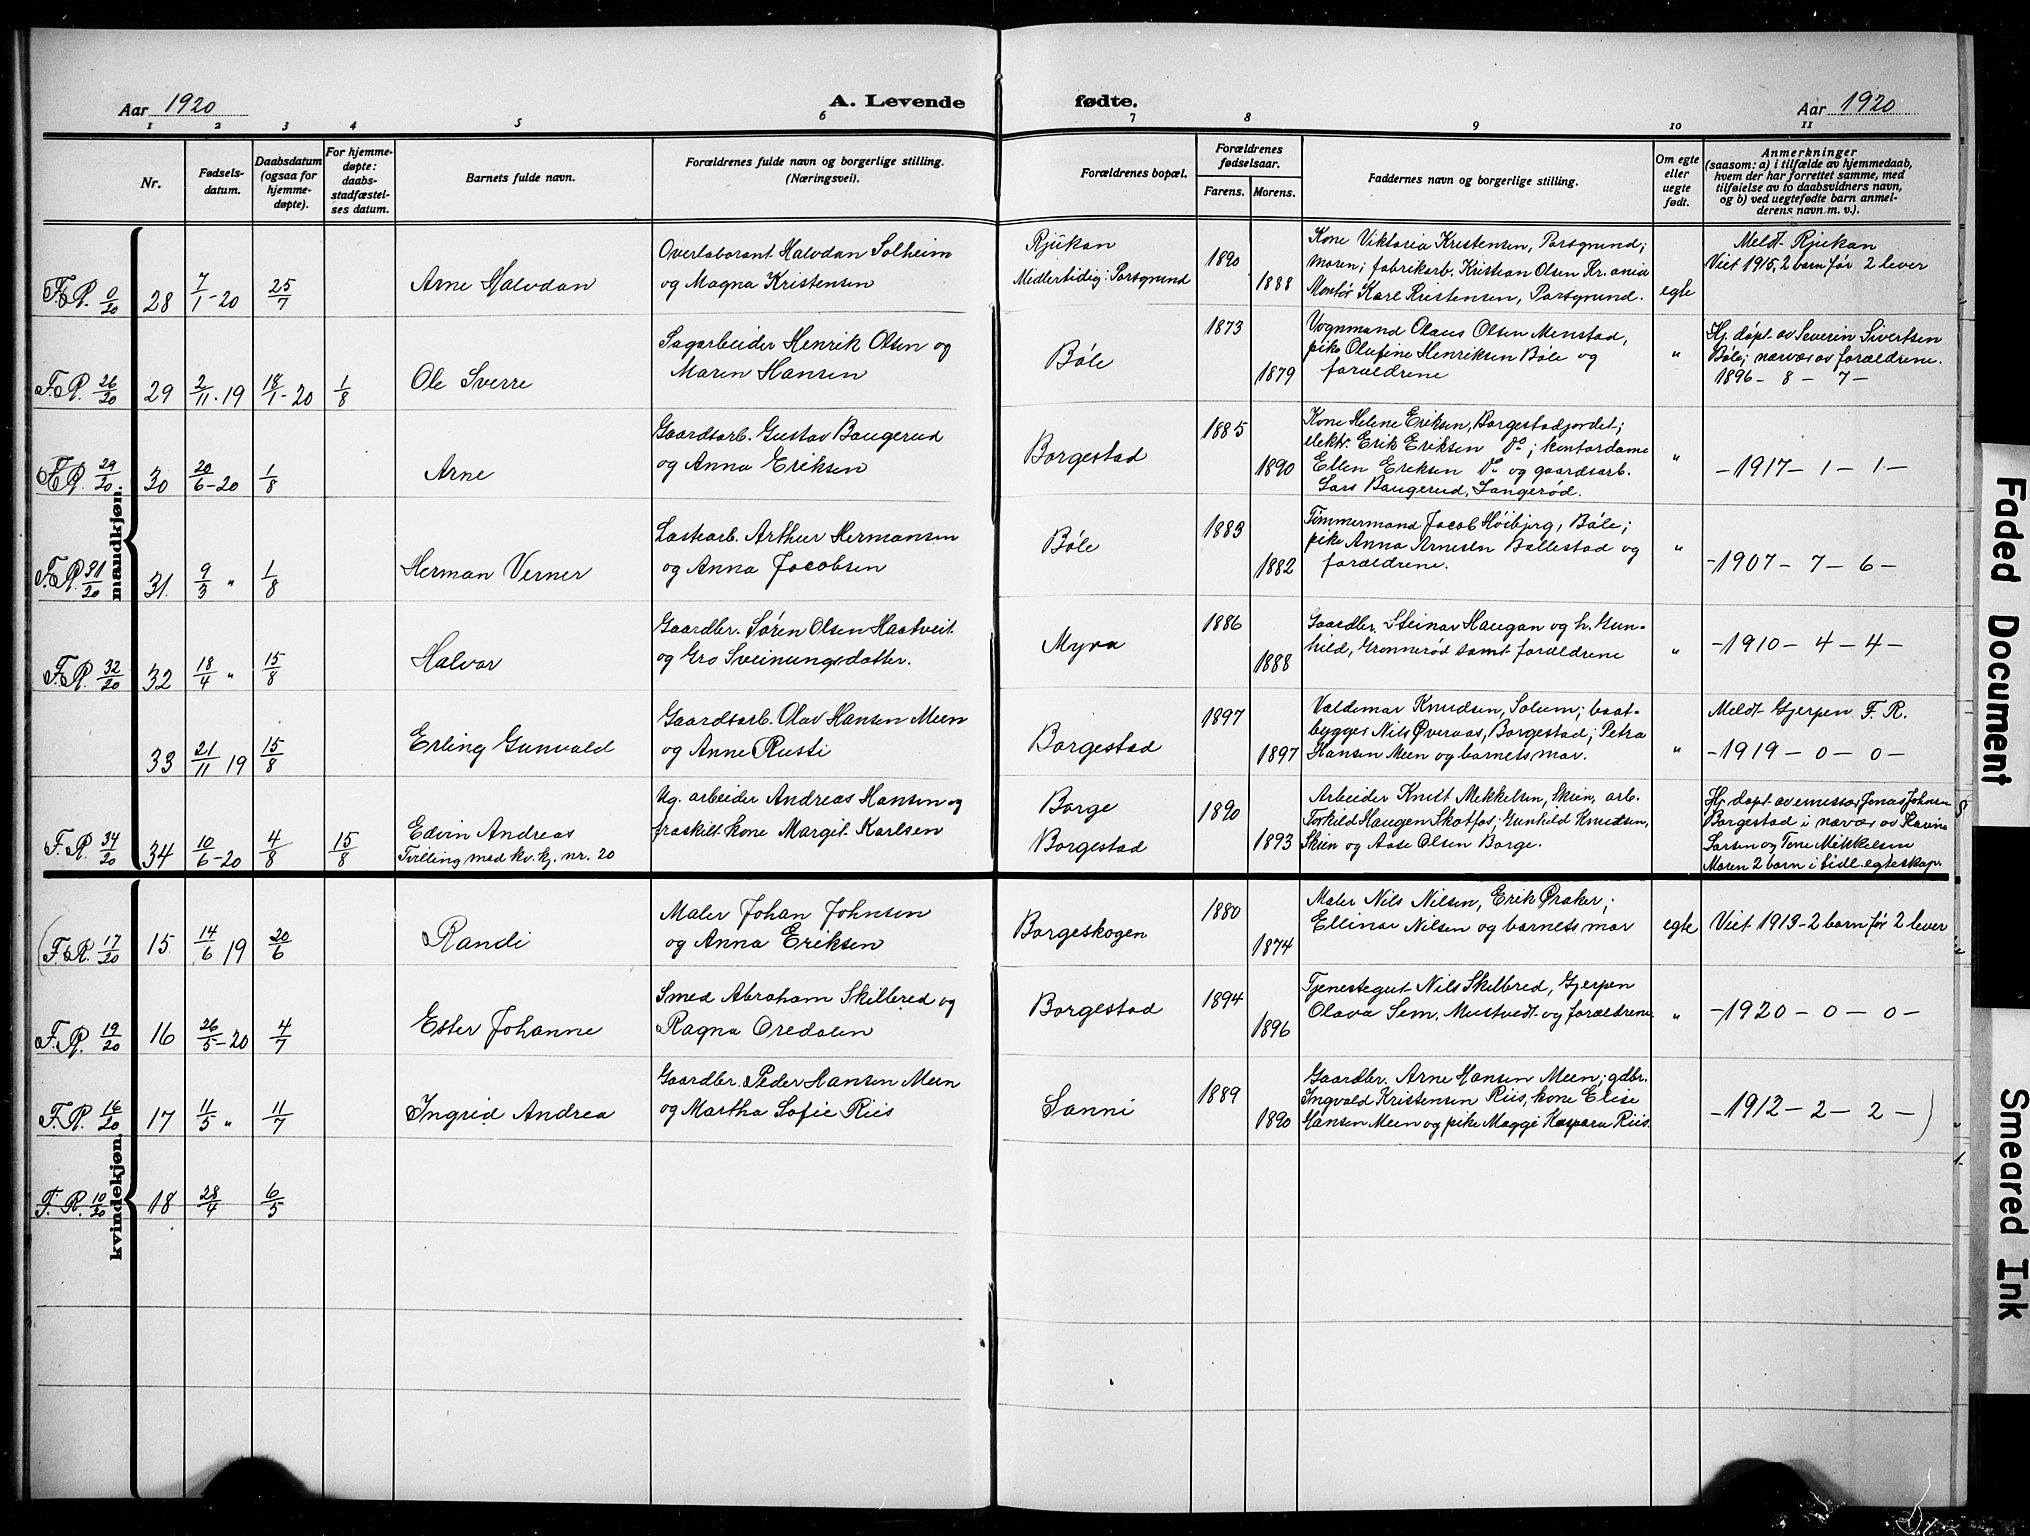 Aar 1920
A. Levende fødte.
Aar 1920
1 2 3 4 5 6 7 8 9 10 11
Nr.
Fødsels-
datum.
Daabsdatum
(ogsaa for
hjemme-
døpte).
For hjemme-
døpte:
daabs-
stadfæstel-
ses datum.
Barnets fulde navn.
Forældrenes fulde navn og borgerlige stilling.
(Næringsvei).
Forældrenes bopæl.
Forældrenes
fødselsaar.
Farens. Morens.
Faddernes navn og borgerlige stilling.
Om egte
eller
uegte
født.
Anmerkninger
(saasom: a) i tilfælde av hjemmedaab,
hvem der har forrettet samme, med
tilføielse av to daabsvidners navn,
og b) ved uegtefødte barn anmel-
derens navn m. v.).
mandkjøn.
F.R. 0/20 28 7/1-20 25/7
Arne Halvdan
Overlaborant Halvdan Solheim
og Magna Kristensen
Rjukan
Midlertidig: Porsgrund
1890
1888
Kone Viktoria Kristensen, Porsgrund;
moren; fabrikarb. Kristian Olsen Kr.ania
Montør Karl Kristensen, Porsgrund.
egte
Meldt Rjukan
Viet 1915, 2 barn før 2 lever
F.R. 26/20 29 2/11-19 18/1-20 1/8
Ole Sverre
Sagarbeider Henrik Olsen og
Maren Hansen
Bøle
1873
1879
Vognmand Olaus Olsen Menstad,
pike Olufine Henriksen Bøle og
forældrene
"
Hj. døpt av Severin Sivertsen
Bøle; nærvær av forældrene.
1896 - 8 - 7 -
F.R. 29/20 30 20/6-20 1/8
Arne
Gaardsarb. Gustav Baugerud
og Anna Eriksen
Borgestad
1885
1890
Kone Helene Eriksen, Borgestadjordet;
elektr. Erik Eriksen Do; kontordame
Ellen Eriksen Do og gaardsarb.
Lars Baugerud, Langerød.
"
- 1917 - 1 - 1 -
F.R. 31/20 31. 9/3 " 1/8
Herman Verner
Lastearb. Arthur Hermansen
og Anna Jacobsen
Bøle
1883
1882
Tømmermand Jacob Høibjerg, Bøle;
pike Anna Arnesen Ballestad og
forældrene.
"
- 1907 - 7 - 6 -
F.R. 32/20 32 18/4 " 15/8
Halvor
Gaardbr. Søren Olsen Haatveit
og Gro Sveinungsdatter.
Myra
1886
1888
Gaardbr. Steinar Haugan og h. Gun-
hild, Grønnerød samt forældrene
"
- 1910 - 4 - 4 -
33 21/11 19 15/8
Erling Gunvald
Gaardsarb. Olav Hansen Meen
og Anne Rusti
Borgestad
1897
1897
Valdemar Knudsen, Solum; baat-
bygger Nils Øveraas, Borgestad; Petra
Hansen Meen og barnets mor.
"
Meldt Gjerpen F. R.
- 1919 - 0 - 0 -
F.R. 34/20 34 10/6-20 4/8 15/8
Edvin Andreas
Tvilling med kv. kj. nr. 20
Ug. arbeider Andreas Hansen og
fraskilt kone Margit Karlsen
Borge
Borgestad
1890
1893
Arbeider Knut Mekkelsen, Skien, arb.
Torkild Haugen Skotfos; Gunhild Knudsen,
Skien og Aase Olsen Borge.
Hj. døpt av emissær Jonas Johnsen
Borgestad i nærvær av Karine
Larsen og Tone Mikkelsen
Moren 2 barn i tidl. egteskap.
kvindekjøn.
(F.R. 17/20 15 14/6 19 20/6
Randi
Maler Johan Johnsen
og Anna Eriksen
Borgeskogen
1880
1874
Maler Nils Nilsen, Erik Øraker;
Ellinor Nilsen og barnets mor
egte
Viet 1913 - 2 barn før 2 lever
F.R. 19/20 16 26/5-20 4/7
Ester Johanne
Smed Abraham Skilbred og
Ragna Oredalen
Borgestad
1894
1896
Tjenestegut Nils Skilbred, Gjerpen
Olava Sem, Mustvedt og forældrene
"
- 1920 - 0 - 0 -
F.R. 16/20 17 11/5 " 11/7
Ingrid Andrea
Gaardbr. Peder Hansen Meen
og Martha Sofie Riis
Sanni
1889
1890
Gaardbr. Arne Hansen Meen; gdbr.
Ingvald Kristensen Riis, kone Elise
Hansen Meen og pike Maggi Kaspara Riis.
- 1912 - 2 - 2 - )
F.R. 10/20 18 28/4 6/5
Faded Document
Smeared Ink